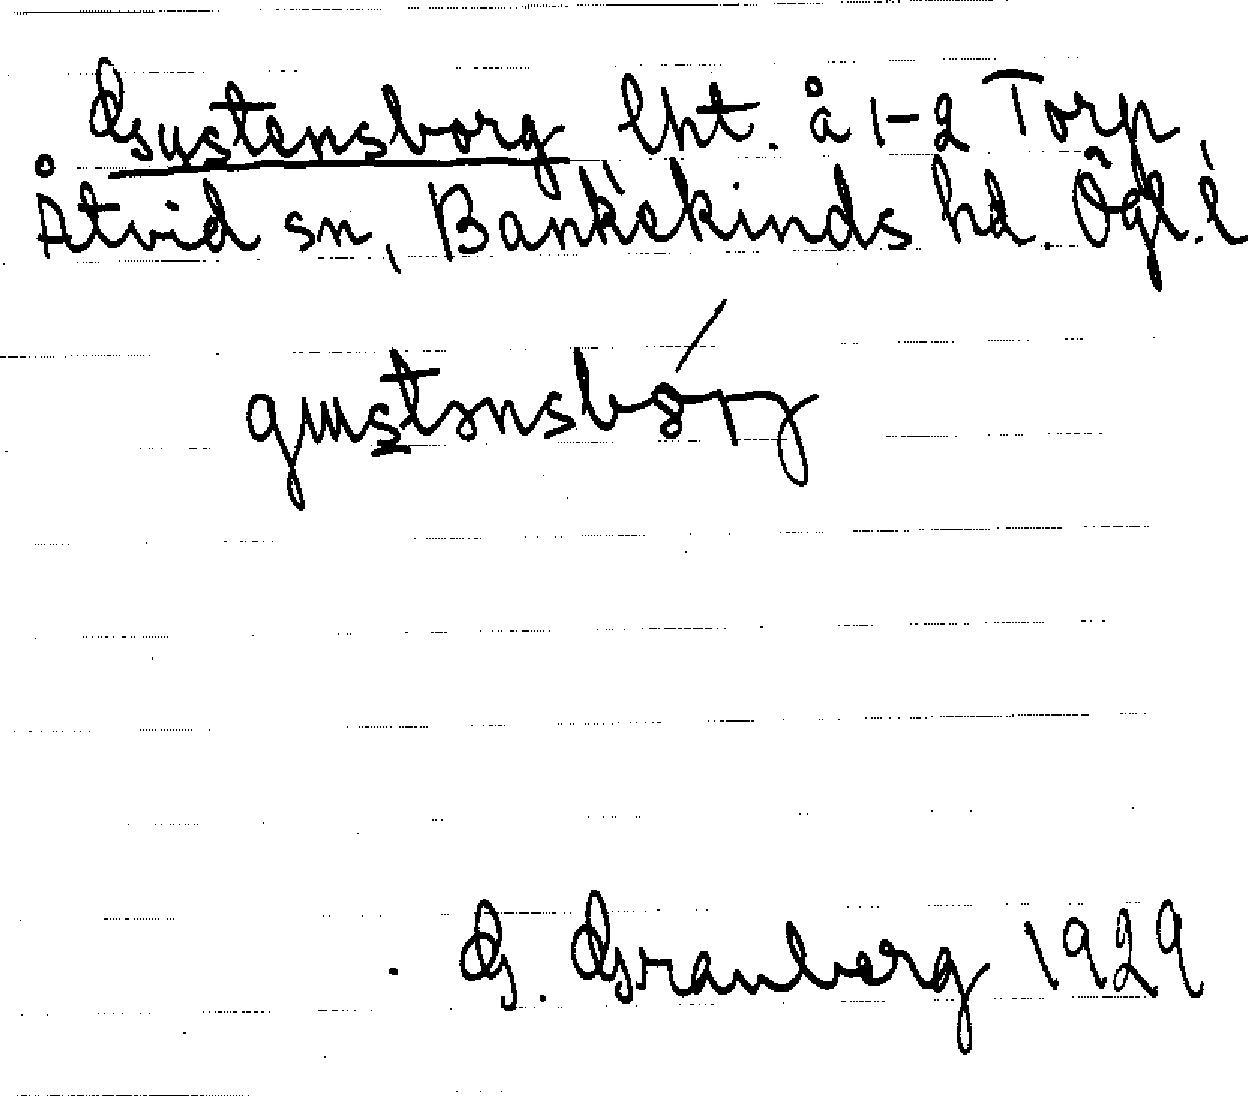 Gustensborg lht. å 1-2 Torp
Åtvid sn, Bankekinds hd. Ögl. i
gustənsbórj
G. Granberg 1929